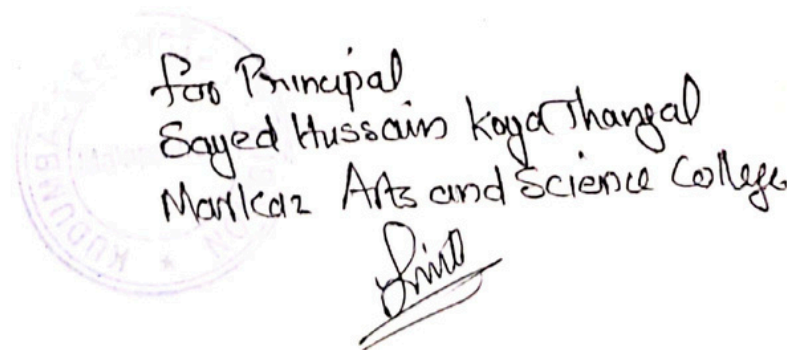 for Principal
Sayed Hussain Koya Thangal
Markaz Arts and Science College